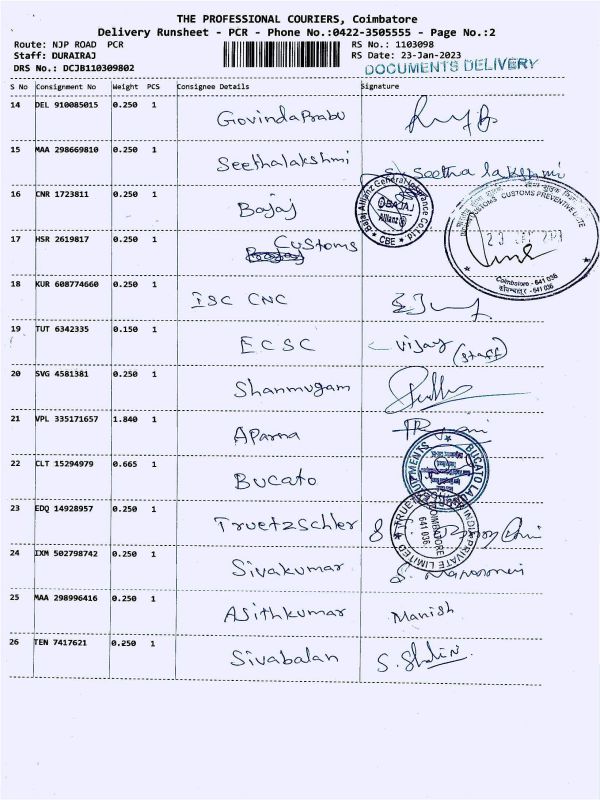 THE PROFESSIONAL COURIERS, Coimbatore
Delivery Runsheet - PCR - Phone No.:0422-3505555 - Page No.:2
Route: NJP ROAD PCR RS No.: 1103098
Staff: DURAIRAJ RS Date: 23-Jan-2023
DRS No.: DCJB110309802 DOCUMENTS DELIVERY
S No Consignment No Weight PCS Consignee Details Signature
14 DEL 910085015 0.250 1 GovindaPrabu
15 MAA 298669810 0.250 1 Seethalakshmi Seethalakshmi
16 CNR 1723811 0.250 1 Bajaj
Bajaj Allianz General Insurance Co.
BAJAJ
Allianz
CBE
17 HSR 2619817 0.250 1 Customs
CUSTOMS PREVENTIVE UNIT
Coimbatore - 641 036
18 KUR 608774660 0.250 1 ISC CNC
19 TUT 6342335 0.150 1 ECSC Vijay (staff)
20 SVG 4581381 0.250 1 Shanmugam
21 VPL 335171657 1.840 1 Aparna
22 CLT 15294979 0.665 1 Bucato
BUCATO
23 EDQ 14928957 0.250 1 Truetzschler
INDIA PRIVATE LIMITED
COIMBATORE
641 036
24 IXM 502798742 0.250 1 Sivakumar
25 MAA 298996416 0.250 1 Asithkumar Manish
26 TEN 7417621 0.250 1 Sivabalan